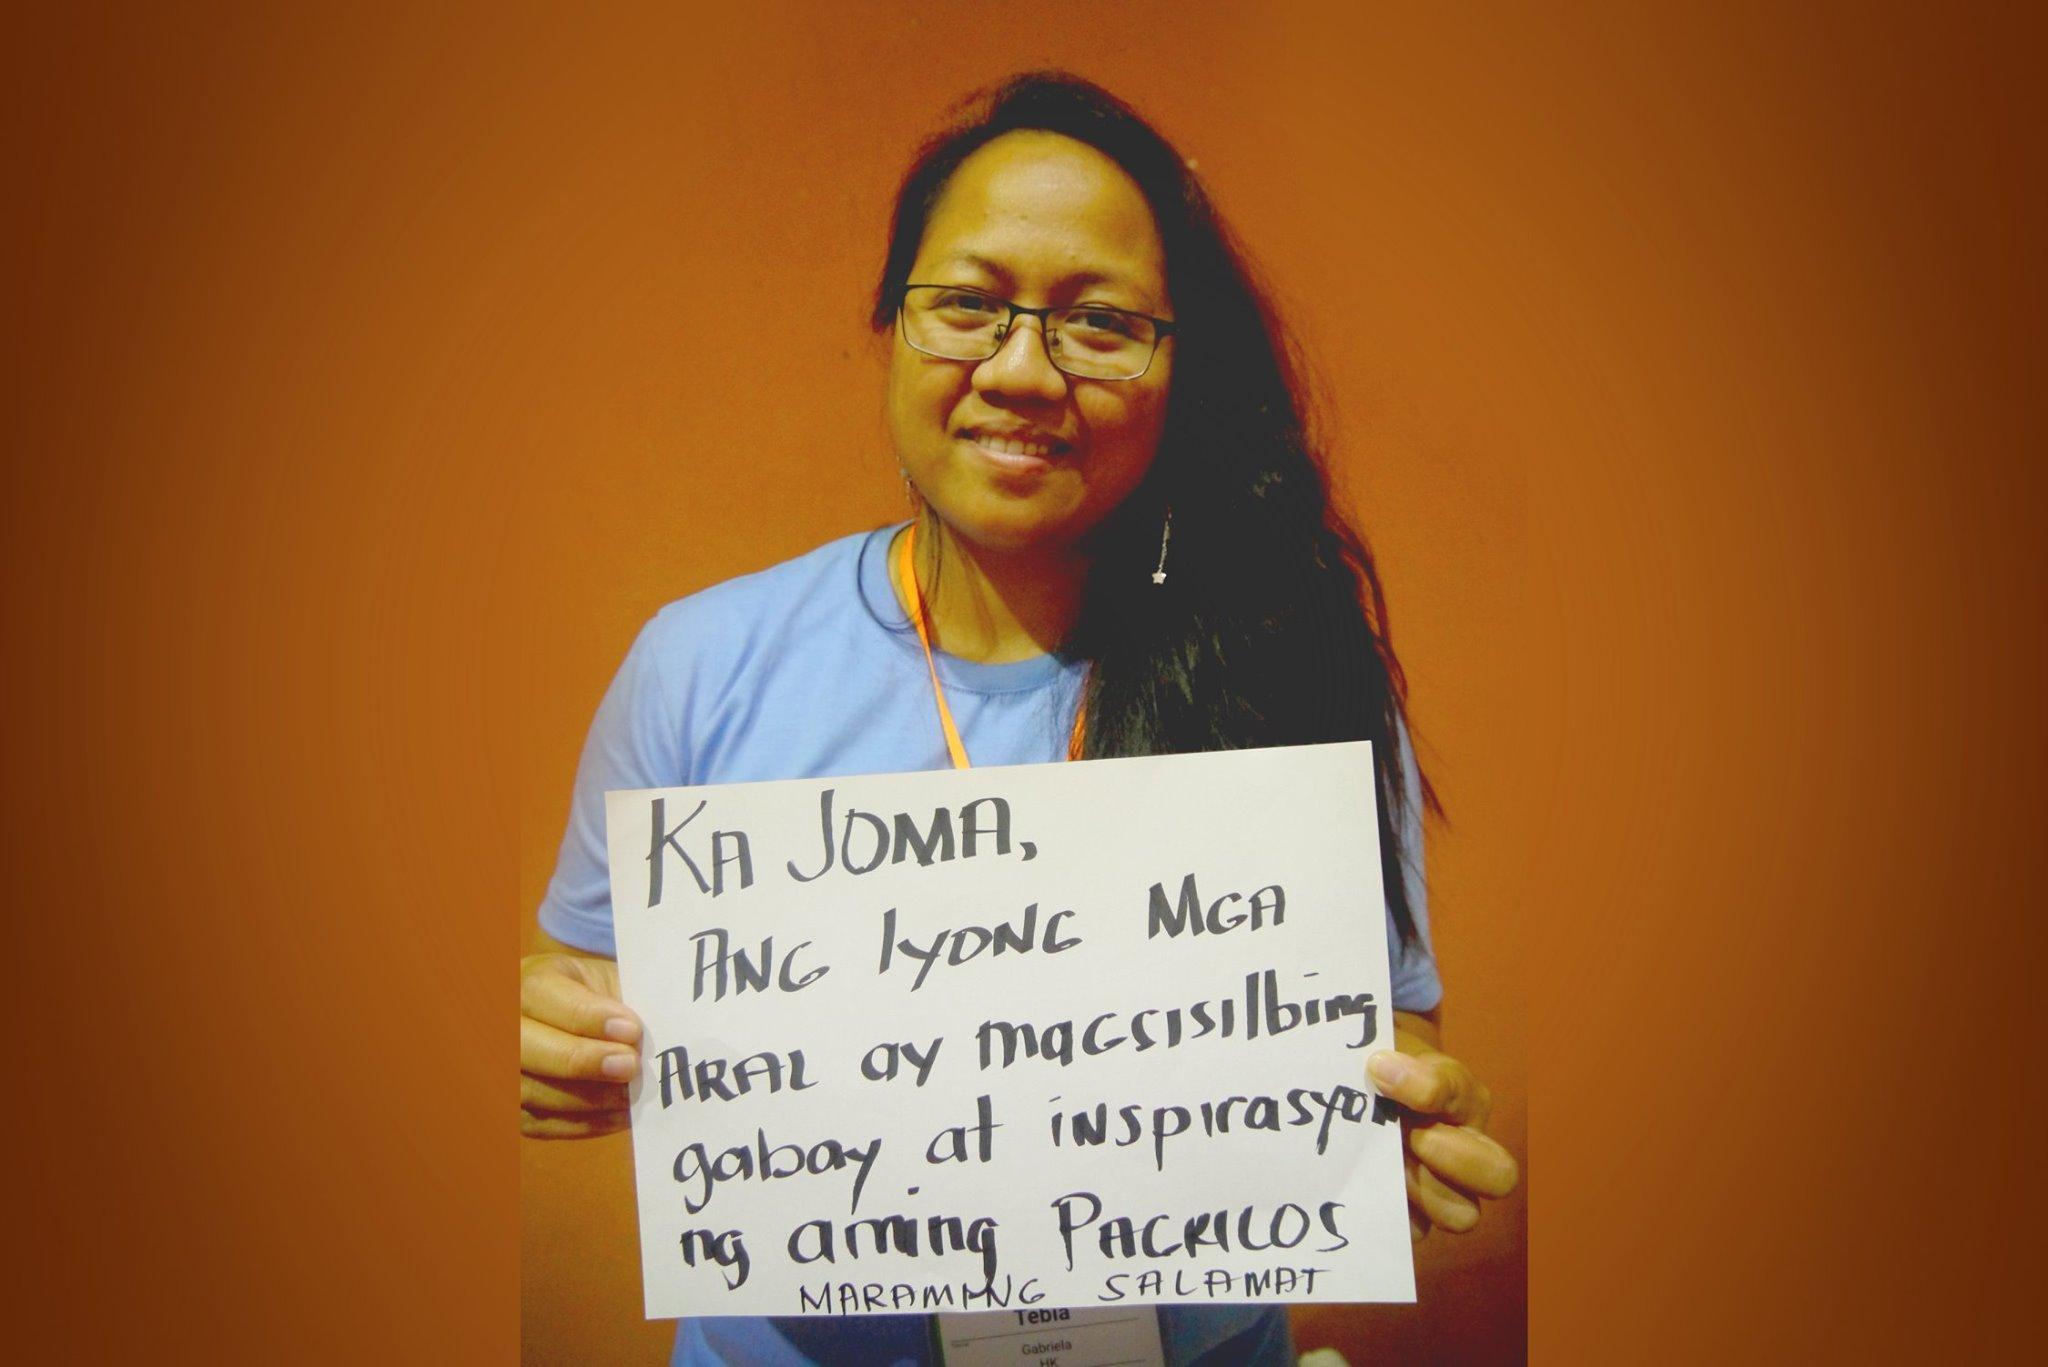 KA JOMA,
ANG IYONG MGA
ARAL ay magsisilbing
gabay at inspirasyon
ng aming PAGKILOS
MARAMING SALAMAT
Tebia
Gabriela
HK